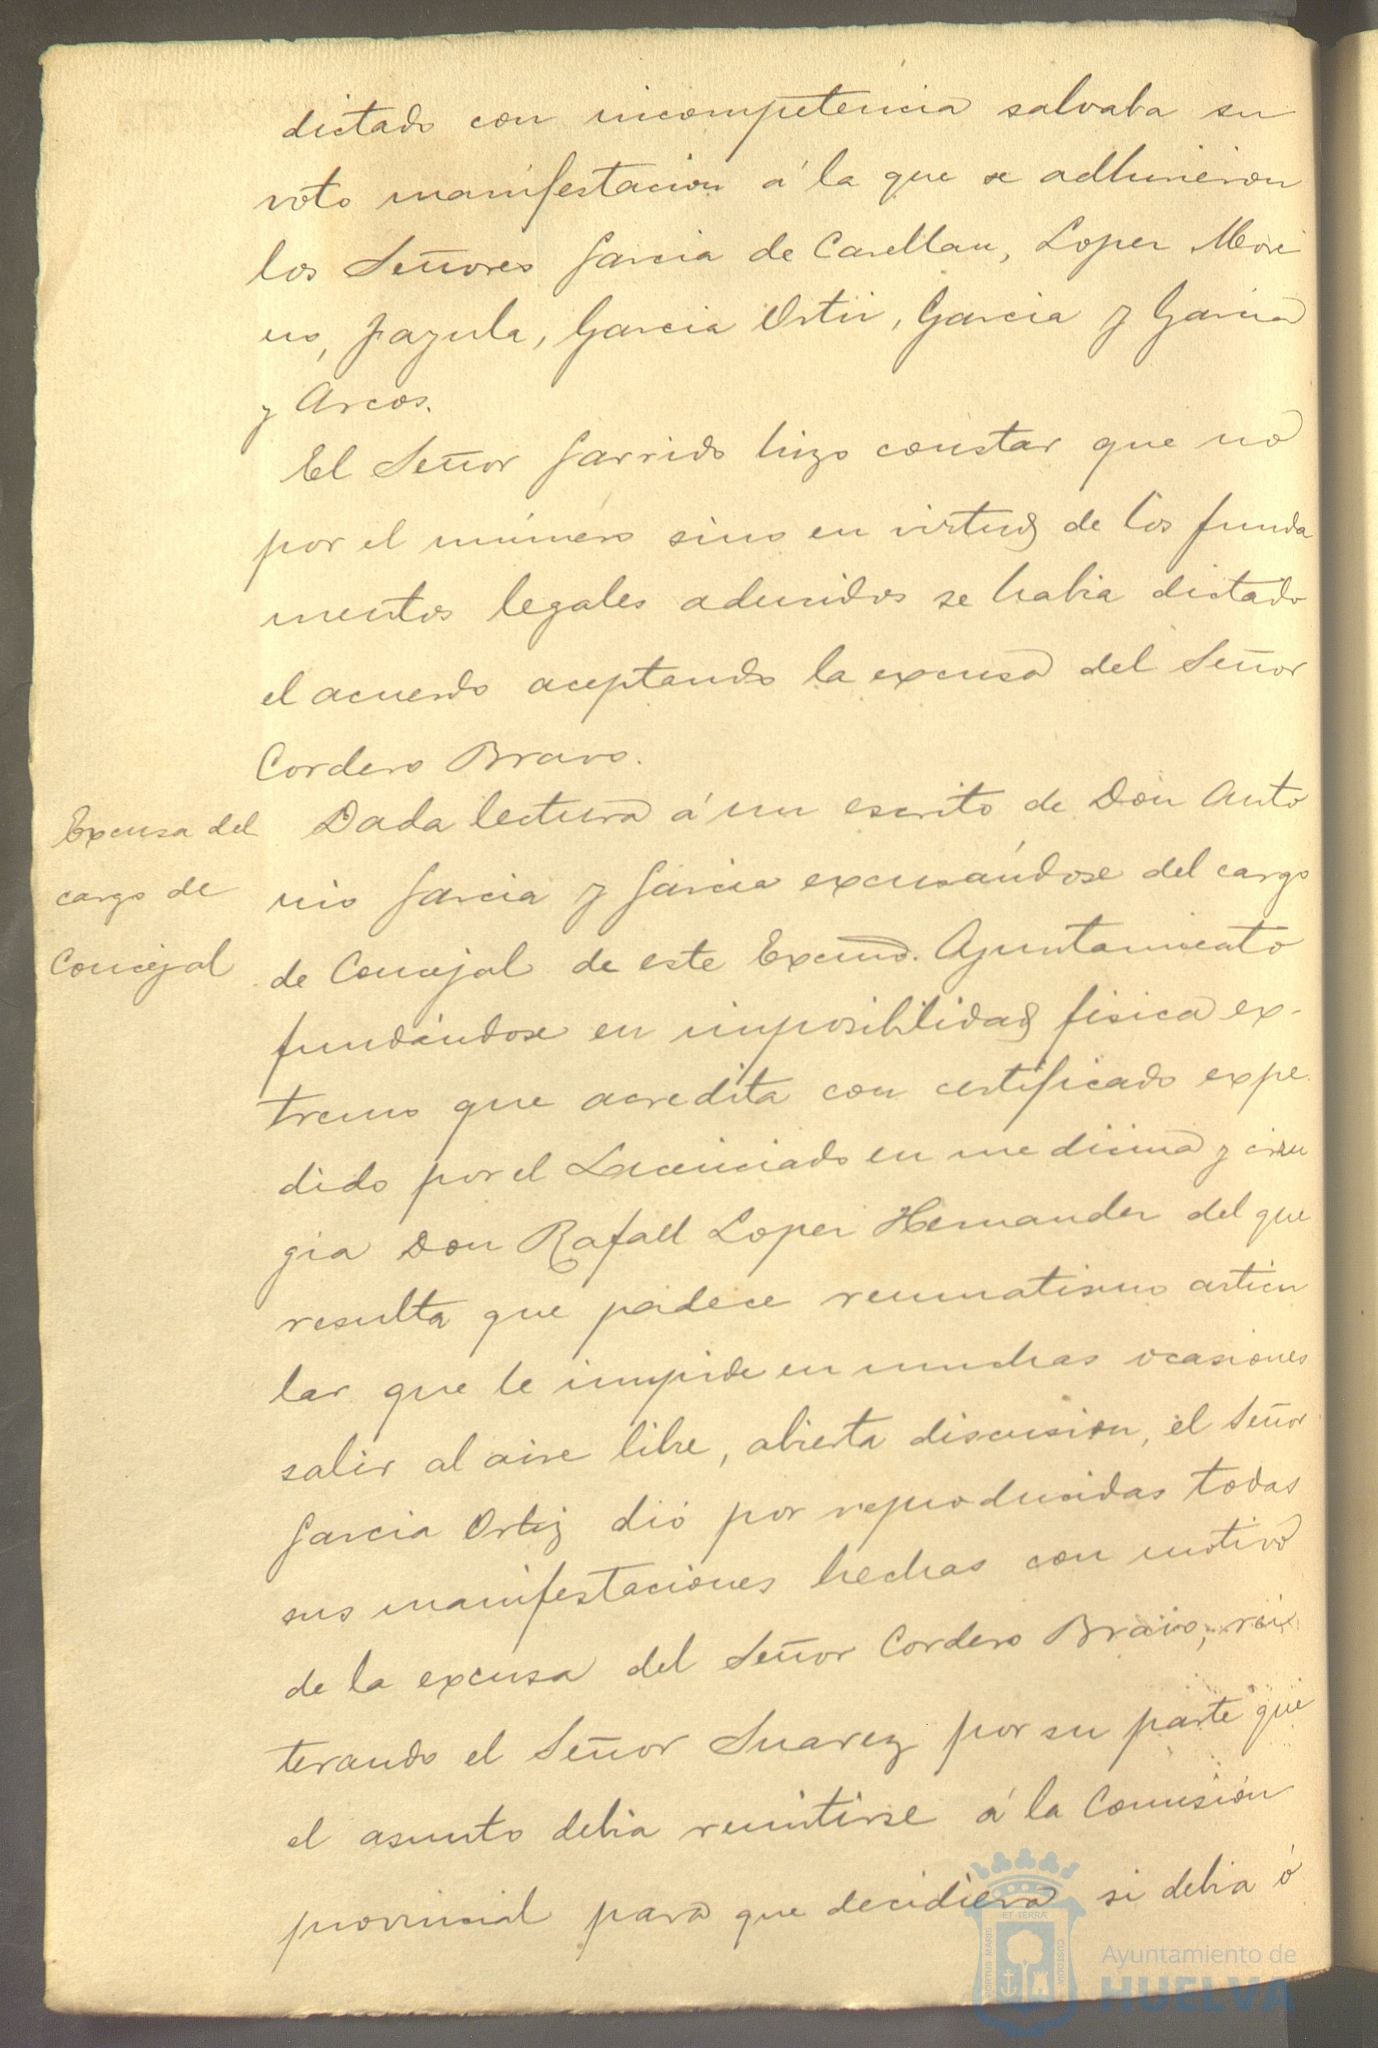 dictado con incompetencia salvaba su
voto manifestacion á la que se adhirieron
los Señores Garcia de Casellan, Lopez More
no, Jazula, Garcia Ortiz, Garcia y Garcia
y Arcos.
El Señor Garrido hizo constar que no
por el número sino en virtud de los funda
mentos legales aducidos se habia dictado
el acuerdo aceptando la excusa del Señor
Cordero Bravo.
Excusa del
cargo de
Concejal
Dada lectura á un escrito de Don Anto
nio Garcia y Garcia excusándose del cargo
de Concejal de este Excmo. Ayuntamiento
fundándose en imposibilidad fisica ex-
tremo que acredita con certificado expe
dido por el Licenciado en medicina y ciru
gia Don Rafael Lopez Hernandez del que
resulta que padece reumatismo articu
lar que le impide en muchas ocasiones
salir al aire libre, abierta discusion, el Señor
Garcia Ortiz dió por reproducidas todas
sus manifestaciones hechas con motivo
de la excusa del Señor Cordero Bravo, rei
terando el Señor Suarez por su parte que
el asunto debia remitirse á la Comisión
provincial para que decidiera si debia ó
PORTUS MARIS
ET TERRÆ
CUSTODIA
Ayuntamiento de
HUELVA